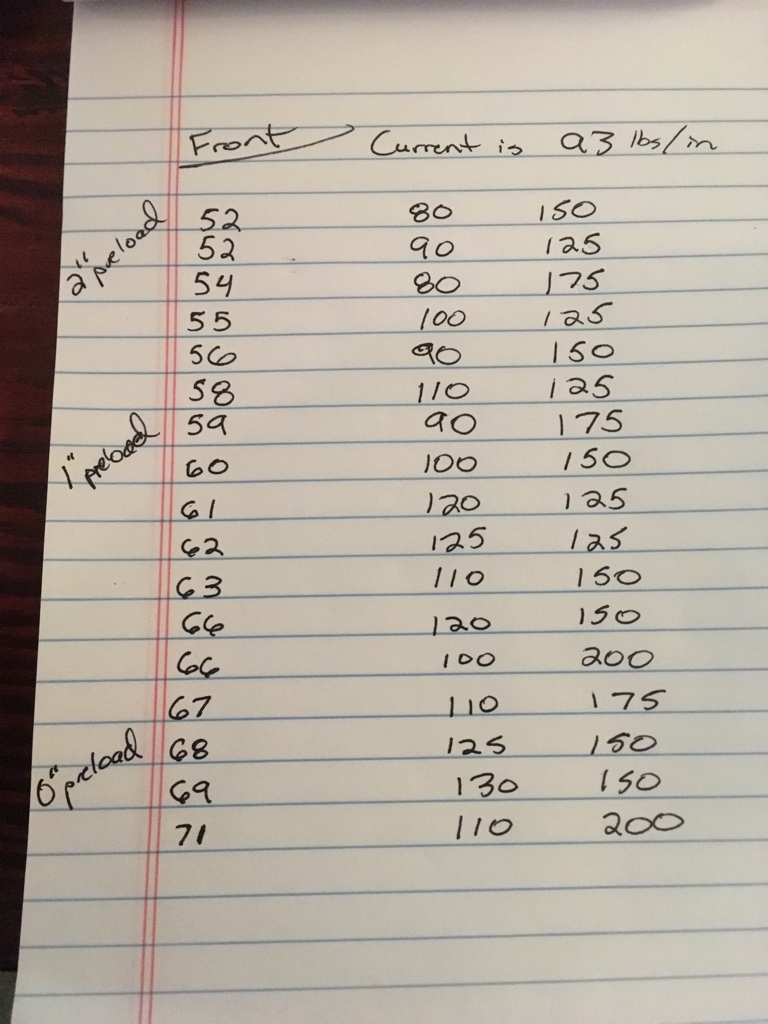 Front Current is 93 lbs/in
2" preload
52 80 150
52 90 125
54 80 175
55 100 125
56 90 150
58 110 125
1" preload
59 90 175
60 100 150
61 120 125
62 125 125
63 110 150
66 120 150
66 100 200
67 110 175
0" preload
68 125 150
69 130 150
71 110 200